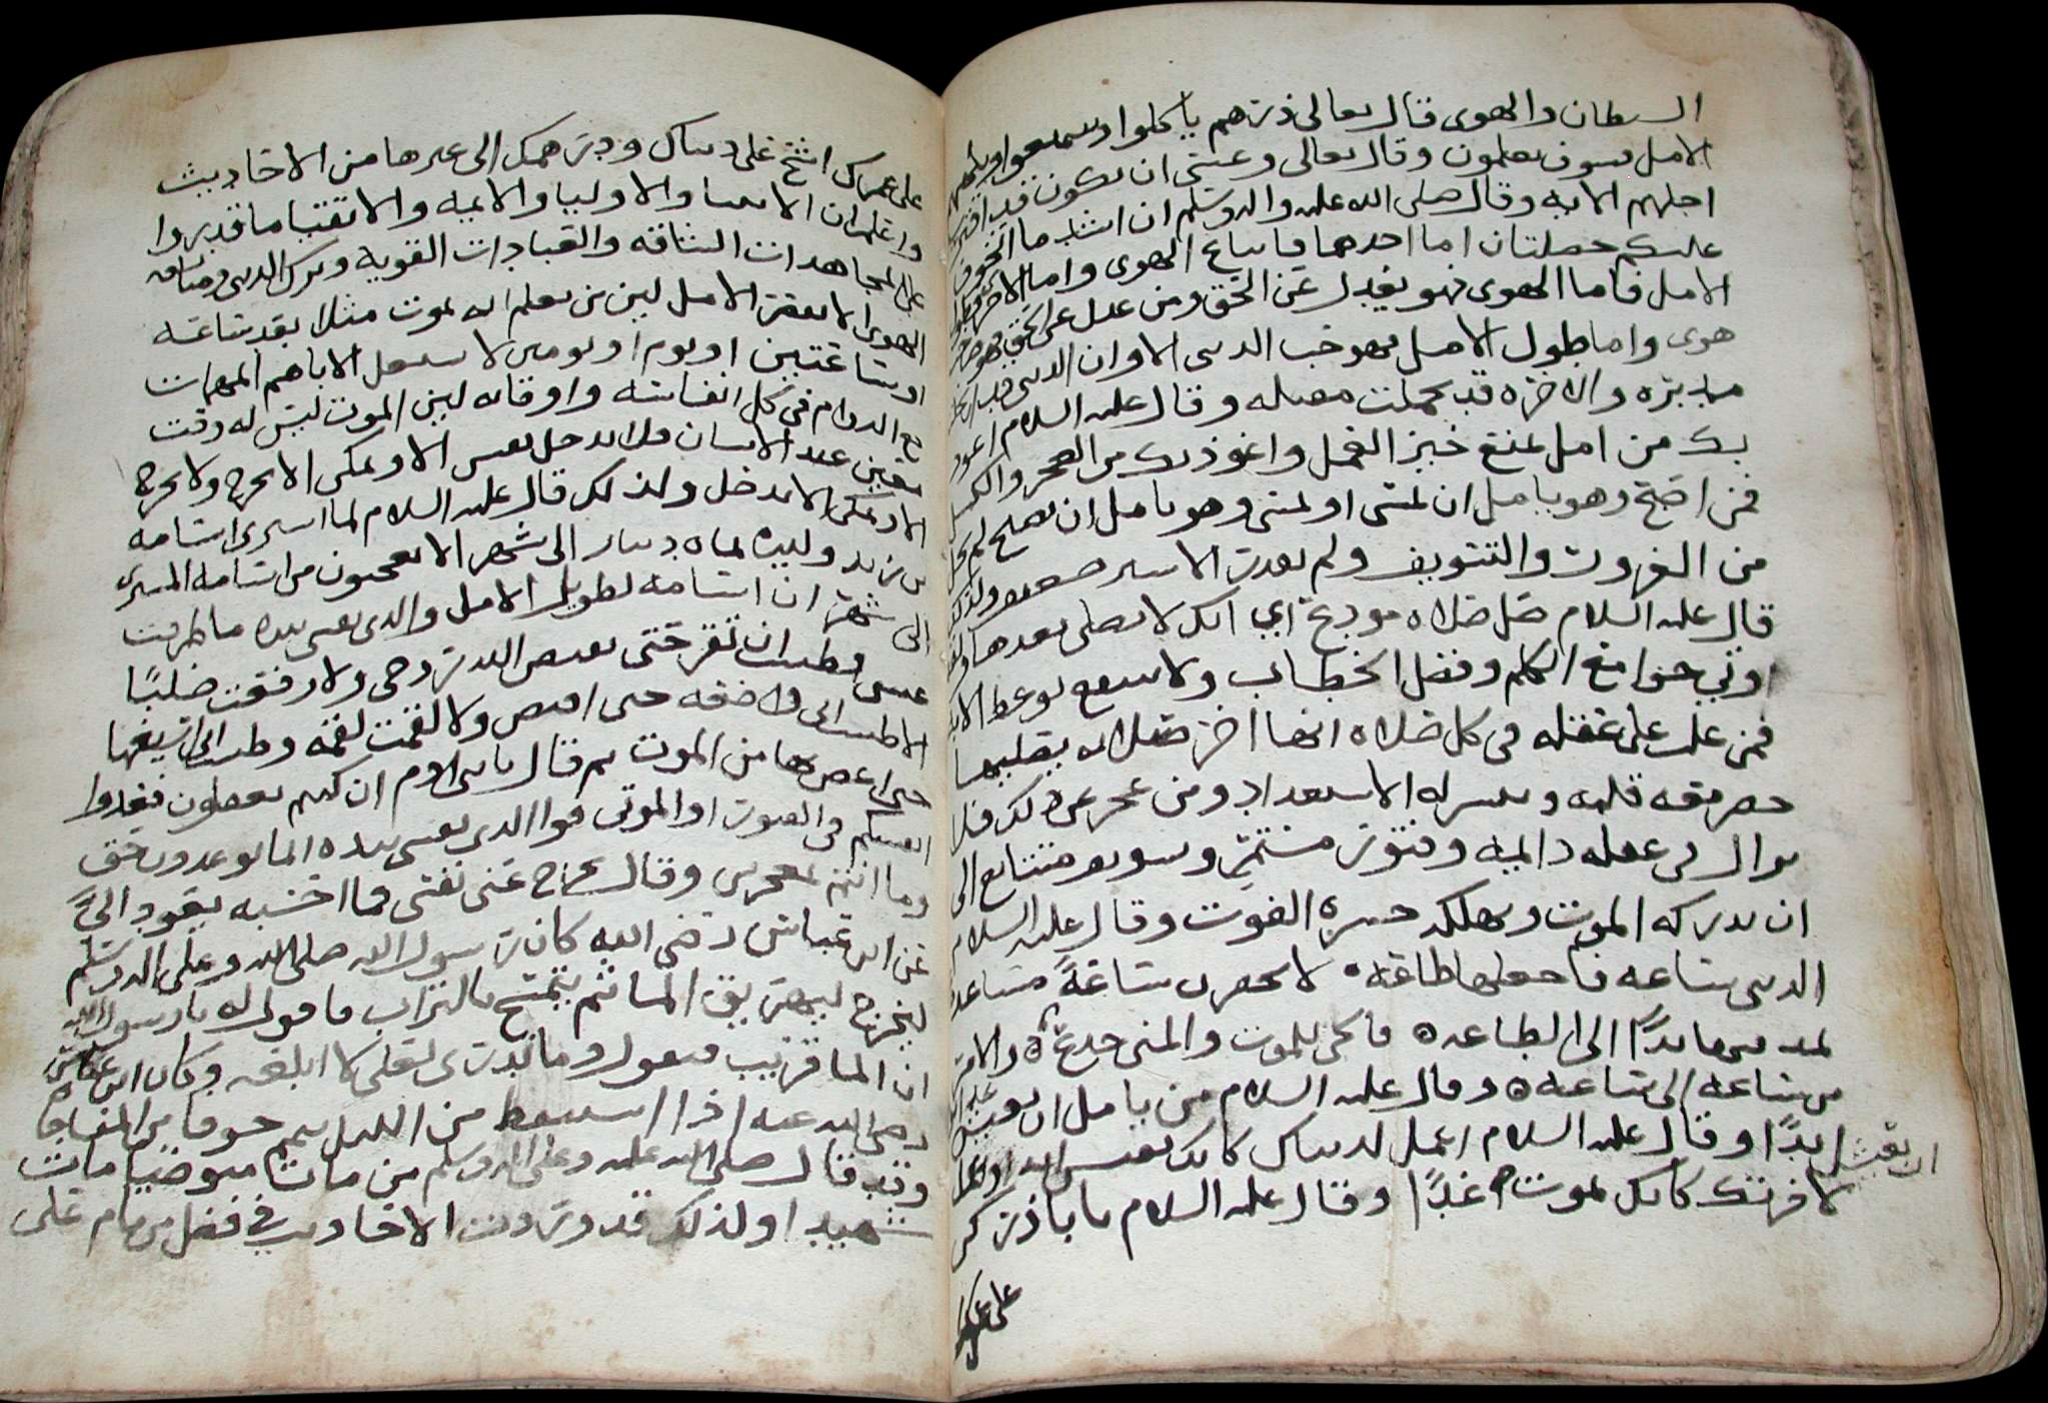 السطان والهوى قال تعالى ذرهم ياكلوا ويتمتعوا ويلههم
الامل فسوف يعلمون وقال تعالى وعسى ان يكون قد اقترب
اجلهم الايه وقال صلى الله عليه واله وسلم ان اشد ما اتخوف
عليكم خصلتان اما احدهما فاتباع الهوى واما الاخرى فطول
الامل فاما الهوى فهو يعدل عن الحق ومن عدل عن الحق فهو
هوى واما طول الامل فهو حب الدنيا الا وان الدنيا قد ارتحلت
مدبره والاخره قد تحملت مقبله وقال عليه السلام اعوذ
بك من امل يمنع خير العمل واعوذ بك من العجز والكسل
فمن اصبح وهو يامل ان يمسى او يمسى وهو يامل ان يصبح لم يخل
من الفتور والتسويف ولم يقدر الا سير ضعيف ولذلك
قال عليه السلام صل صلاه مودع اي انك لا تصلى بعدها
اوتي جوامع الكلم وفصل الخطاب ولا ينتفع بوعظ الا
فمن غلب على عقله في كل صلاه انها اخر صلاته
حضر معه قلبه وتيسر له الاستعداد ومن عجز عن ذلك فلا
يزال في غفله دايمه وفتور مستمر وتسويف متتابع الى
ان يدركه الموت وتهلكه حسره الفوت وقال عليه السلام
الدنيا ساعه فاجعلها طاعه لا تحقرن ساعة مساعده
تمد فيها يدًا الى الطاعه فاحي للموت والمنى خدعة والامر
من ساعه الى ساعه وقال عليه السلام من يامل ان يعيش غدا
ابدًا وقال عليه السلام اعمل لدنياك كانك تعيش ابدا واعمل
ان يعيش
لاخرتك كانك تموت غدًا وقال عليه السلام يا با ذر كن
على عمرك
على عمرك اشح على دينارك ودرهمك الى غيرها من الاحاديث
واعلم ان الانبيا والاوليا والايمه والاتقيا ما قدروا
على المجاهدات الشاقه والعبادات القويه وترك الدنيا ومشاق
الهوى الا بقصر الامل لين من يعلم انه يموت مثلا بعد ساعه
او ساعتين او يوم او يومين لا يشتغل الا باهم المهمات
مع الدوام في كل انفاسه واوقاته لين الموت ليس له وقت
معين عند الانسان فلا يدخل نفس الا ويمكن الا يخرج ولا يخرج
الا ويمكن الا يدخل ولذلك قال عليه السلام لما اشترى اسامه
من زيد وليده بمايه دينار الى شهر الا تعجبون من اسامه المشترى
الى شهر ان اسامه لطويل الامل والذي نفسي بيده ما طرفت
عيني فظننت ان تقر حتى يقبض الله روحى ولا رفعت طلبا
الا ظننت اني واضعه حتى اقبض ولا لقمت لقمه وظننت اني اسيغها
حتى اغص بها من الموت ثم قال يا بني ادم ان كنتم تعقلون فعدوا
انفسكم في الموت او الموتى فوالذي نفسي بيده انما توعدون حق
وما انتم بمعجزين وقال يخرج عني نفسي فما احسبه يعود اليَّ
عن ابن عباس رضي الله كان رسول الله صلى الله وعلى اله وسلم
ليخرج ليهريق الما ثم يتمسح بالتراب فاقول له يا رسول الله
ان الما قريب فيقول وما تدري لعلي لا ابلغه وكان ابن عباس
رضي الله عنه اذا استيقظ من الليل تيمم خوفا من المفاجاه
وقد قال صلى الله عليه وعلى اله وسلم من مات متوضيا مات
شهيدا ولذلك قد وردت الاحاديث في فضل من نام على